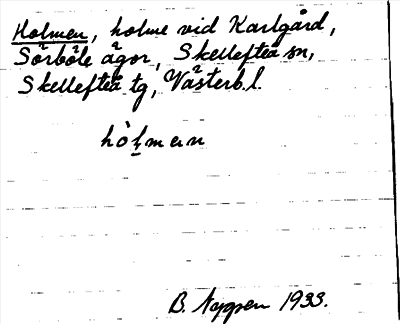 Holmen, holme vid Karlgård,
Sörböle ägor, Skellefteå sn,
Skellefteå tg, Västerb. l.
hòḷmen
B. Nygren 1933.